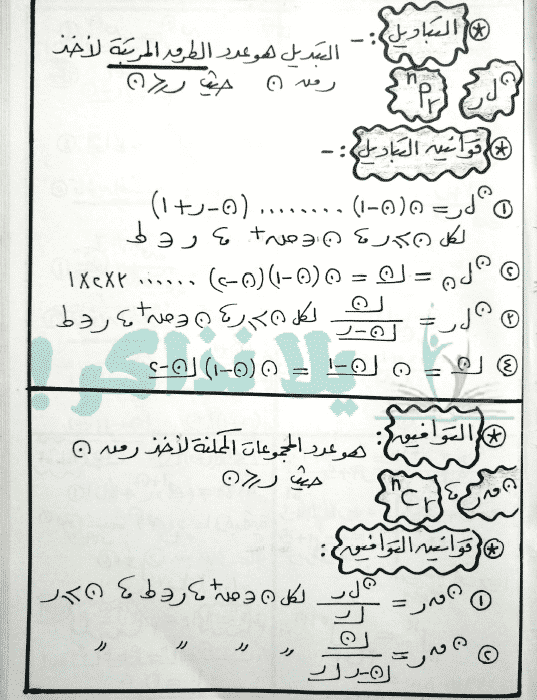 * التباديل :- التبديل هو عدد الطرق المرتبة لأخذ
ر من ن حيث ر ≤ ن
ⁿPᵣ ، ⁿلر
* قوانين التباديل :-
① ⁿلر = ن(ن-١) ........ (ن-ر+١)
لكل ن ≥ ر ، ن ∈ ص+ ، ر ∈ ط
② ⁿلن = ⌊ن = ن(ن-١)(ن-٢) ...... ٣×٢×١
③ ⁿلر = ⌊ن / ⌊ن-ر لكل ن ≥ ر ، ن ∈ ص+ ، ر ∈ ط
④ ⌊ن = ن ⌊ن-١ = ن(ن-١) ⌊ن-٢
يلا نذاكر!
* التوافيق : هو عدد المجموعات الممكنة لأخذ ر من ن
حيث ر ≤ ن
ⁿقر ، ⁿCᵣ
* قوانين التوافيق :
① ⁿقر = ⁿلر / ⌊ر لكل ن ∈ ص+ ، ر ∈ ط ، ن ≥ ر
② ⁿقر = ⌊ن / ⌊ن-ر ⌊ر " " " "